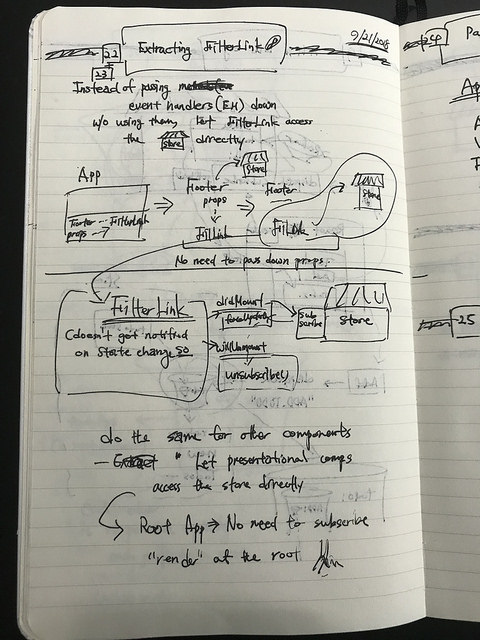 9/21/2018
22
Extracting FilterLink
23
Instead of passing
event handlers (EH) down
w/o using them, let FilterLink access
the store directly
App
Footer FilterLink
props
Footer
props
FilLink
store
Footer
FilLink
store
No need to pass down props
FilterLink
(doesn't get notified
on state change so
didMount
forceUpdate
Sub
scribe
store
willUnmount
unsubscribe()
do the same for other components
— Extract " Let presentational comps
access the store directly
Root App → No need to subscribe
"render" at the root
24
Pa
25